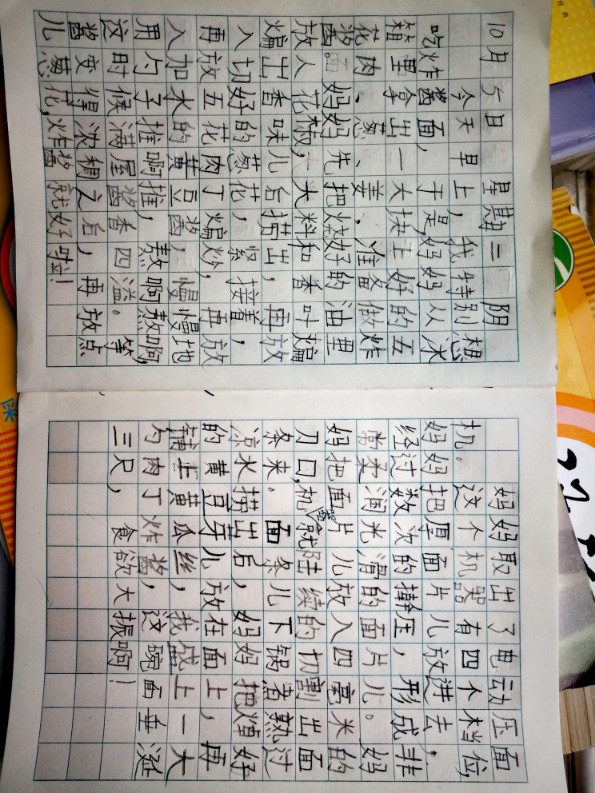 10月5日 星期二 阴
今天早上,我特别想
吃炸酱面,于是妈妈从冰
箱里拿出一大块上好的五
花肉、葱、姜,准备做炸
酱。妈妈先把烧好的油里
放入花椒,大料和香叶煸
煸出香味儿后捞出,再放
入切好的葱花,紧接着,
再放五花肉丁煸炒,再放
入加水的黄豆酱,慢慢地
用勺子推啊推,熬啊熬啊,
这时候满屋酱香四溢。等
酱变得浓稠之后,再放点
儿葱花,炸酱就好啦!
妈妈取出了电动压面
机。这个机器有四个档位,
妈妈把厚面片儿放进去,
经过数次的擀压,形成非
常柔润光滑的面片儿。妈
妈把面片儿放入四毫米的
刀口,机器就陆续的切割出面
条来。面条儿下锅煮熟过
凉水捞出后,妈妈把焯好
的黄豆芽儿放在面上,再
铺上黄瓜丝,我盛上一大
勺肉丁炸酱,这碗面垂涎
三尺,食欲大振啊!